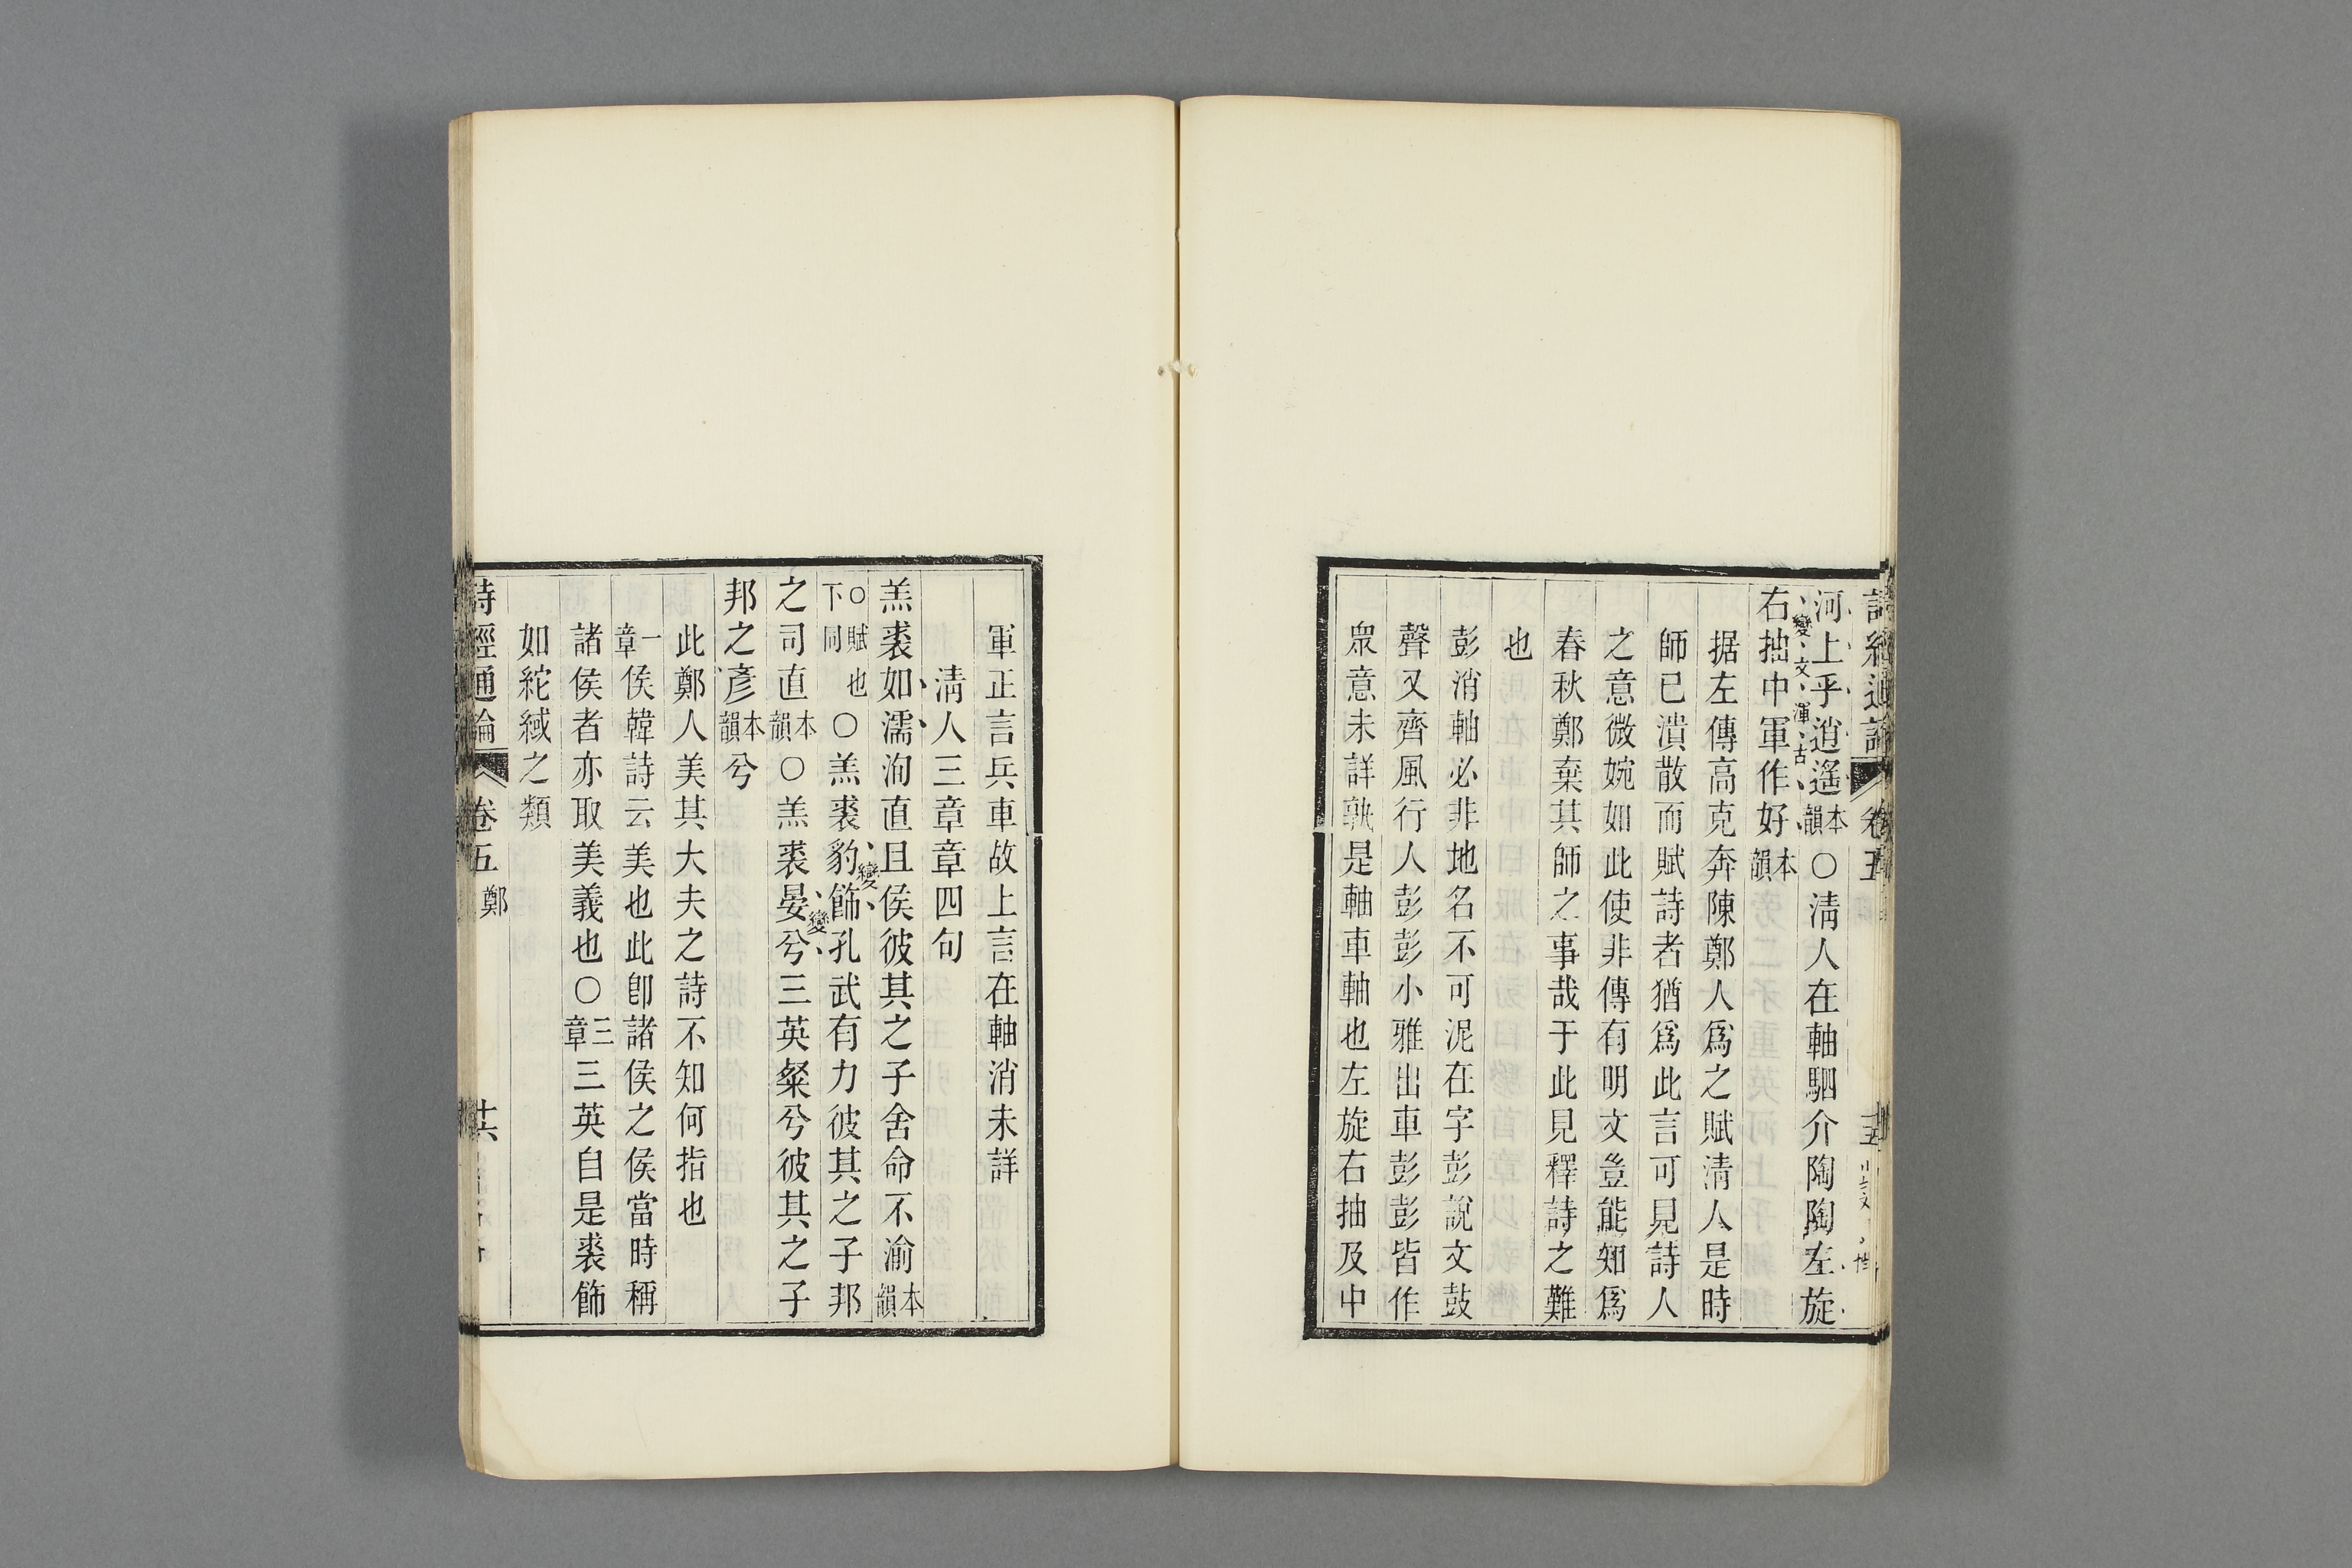 詩經通論 卷五
河上乎逍遙本韻〇清人在軸駟介陶陶左旋
變文渾古
右抽中軍作好本韻
据左傳高克奔陳鄭人爲之賦清人是時
師已潰散而賦詩者猶爲此言可見詩人
之意微婉如此使非傳有明文豈能知爲
春秋鄭棄其師之事哉于此見釋詩之難
也
彭消軸必非地名不可泥在字彭說文鼓
聲又齊風行人彭彭小雅出車彭彭皆作
衆意未詳孰是軸車軸也左旋右抽及中
軍正言兵車故上言在軸消未詳
清人三章章四句
羔裘如濡洵直且侯彼其之子舍命不渝本韻
〇賦也下同〇羔裘豹飾孔武有力彼其之子邦
變
之司直本韻〇羔裘晏兮三英粲兮彼其之子
變
邦之彥本韻兮
此鄭人美其大夫之詩不知何指也
一章侯韓詩云美也此卽諸侯之侯當時稱
諸侯者亦取美義也〇三章三英自是裘飾
如紽緎之類
詩經通論 卷五 鄭 十六